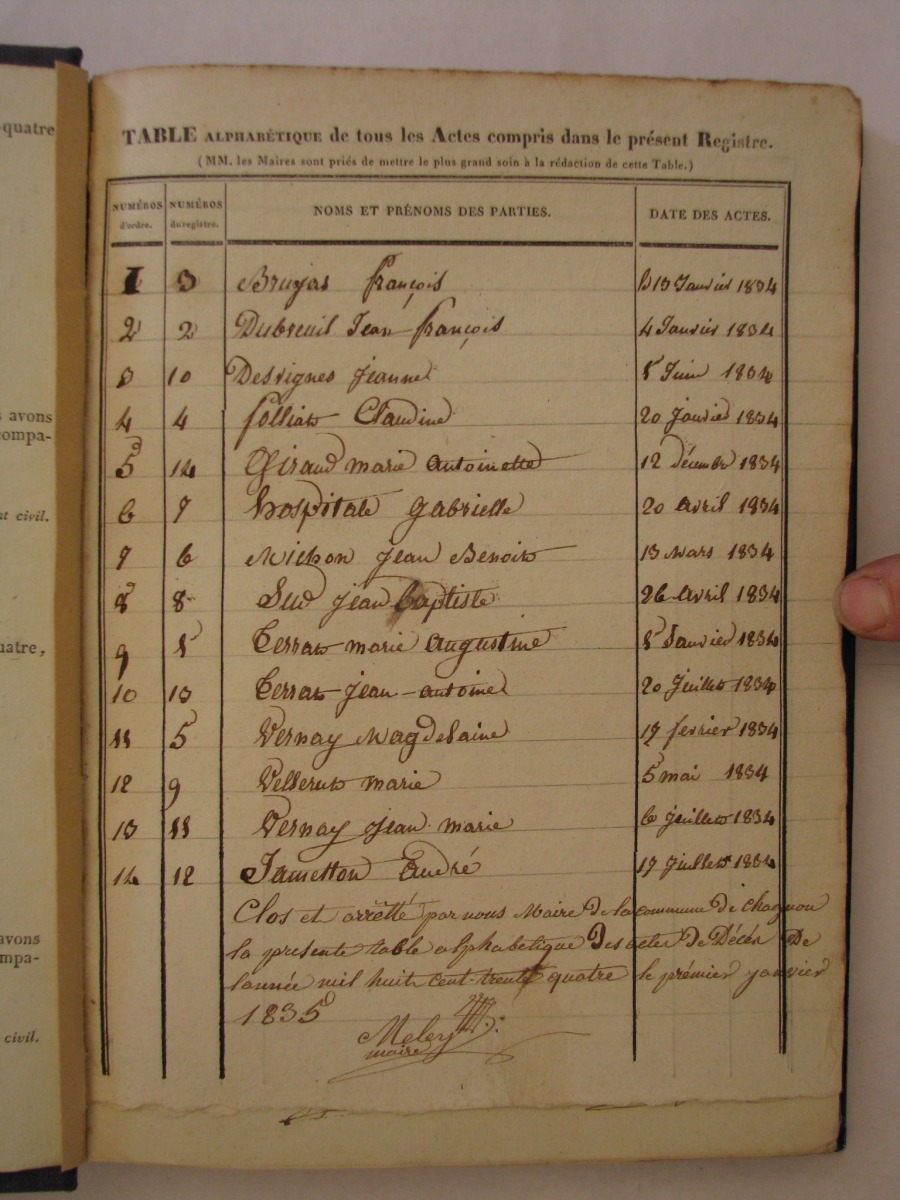 -quatre
avons
compa-
nt civil.
uatre,
avons
mpa-
civil.
TABLE ALPHABÉTIQUE de tous les Actes compris dans le présent Registre.
(MM. les Maires sont priés de mettre le plus grand soin à la rédaction de cette Table.)
NUMÉROS d'ordre. NUMÉROS du registre. NOMS ET PRÉNOMS DES PARTIES. DATE DES ACTES.
1 3 Brujas françois 13 Janvier 1834
2 2 Dubreuil Jean françois 4 Janvier 1834
3 10 Desvignes jeanne 8 Juin 1834
4 4 folliat Claudine 20 janvier 1834
5 14 Giraud marie antoinette 12 décembre 1834
6 7 hospitale gabrielle 20 avril 1834
7 6 Michon jean Benoit 13 Mars 1834
8 8 Sud jean baptiste 26 avril 1834
9 1 Terrat marie augustine 1 Janvier 1834
10 13 Terrat jean-antoine 20 juillet 1834
11 5 Vernay Magdelaine 17 fevrier 1834
12 9 Vellerut marie 5 mai 1834
13 11 Vernay jean marie 6 juillet 1834
14 12 Jametton andré 17 juillet 1834
Clos et arretté par nous Maire De la commune De chagnon
la presente table alphabetique Des actes De Décès De
l'année mil huit cent trente quatre le prémier janvier
1835
Meley
maire